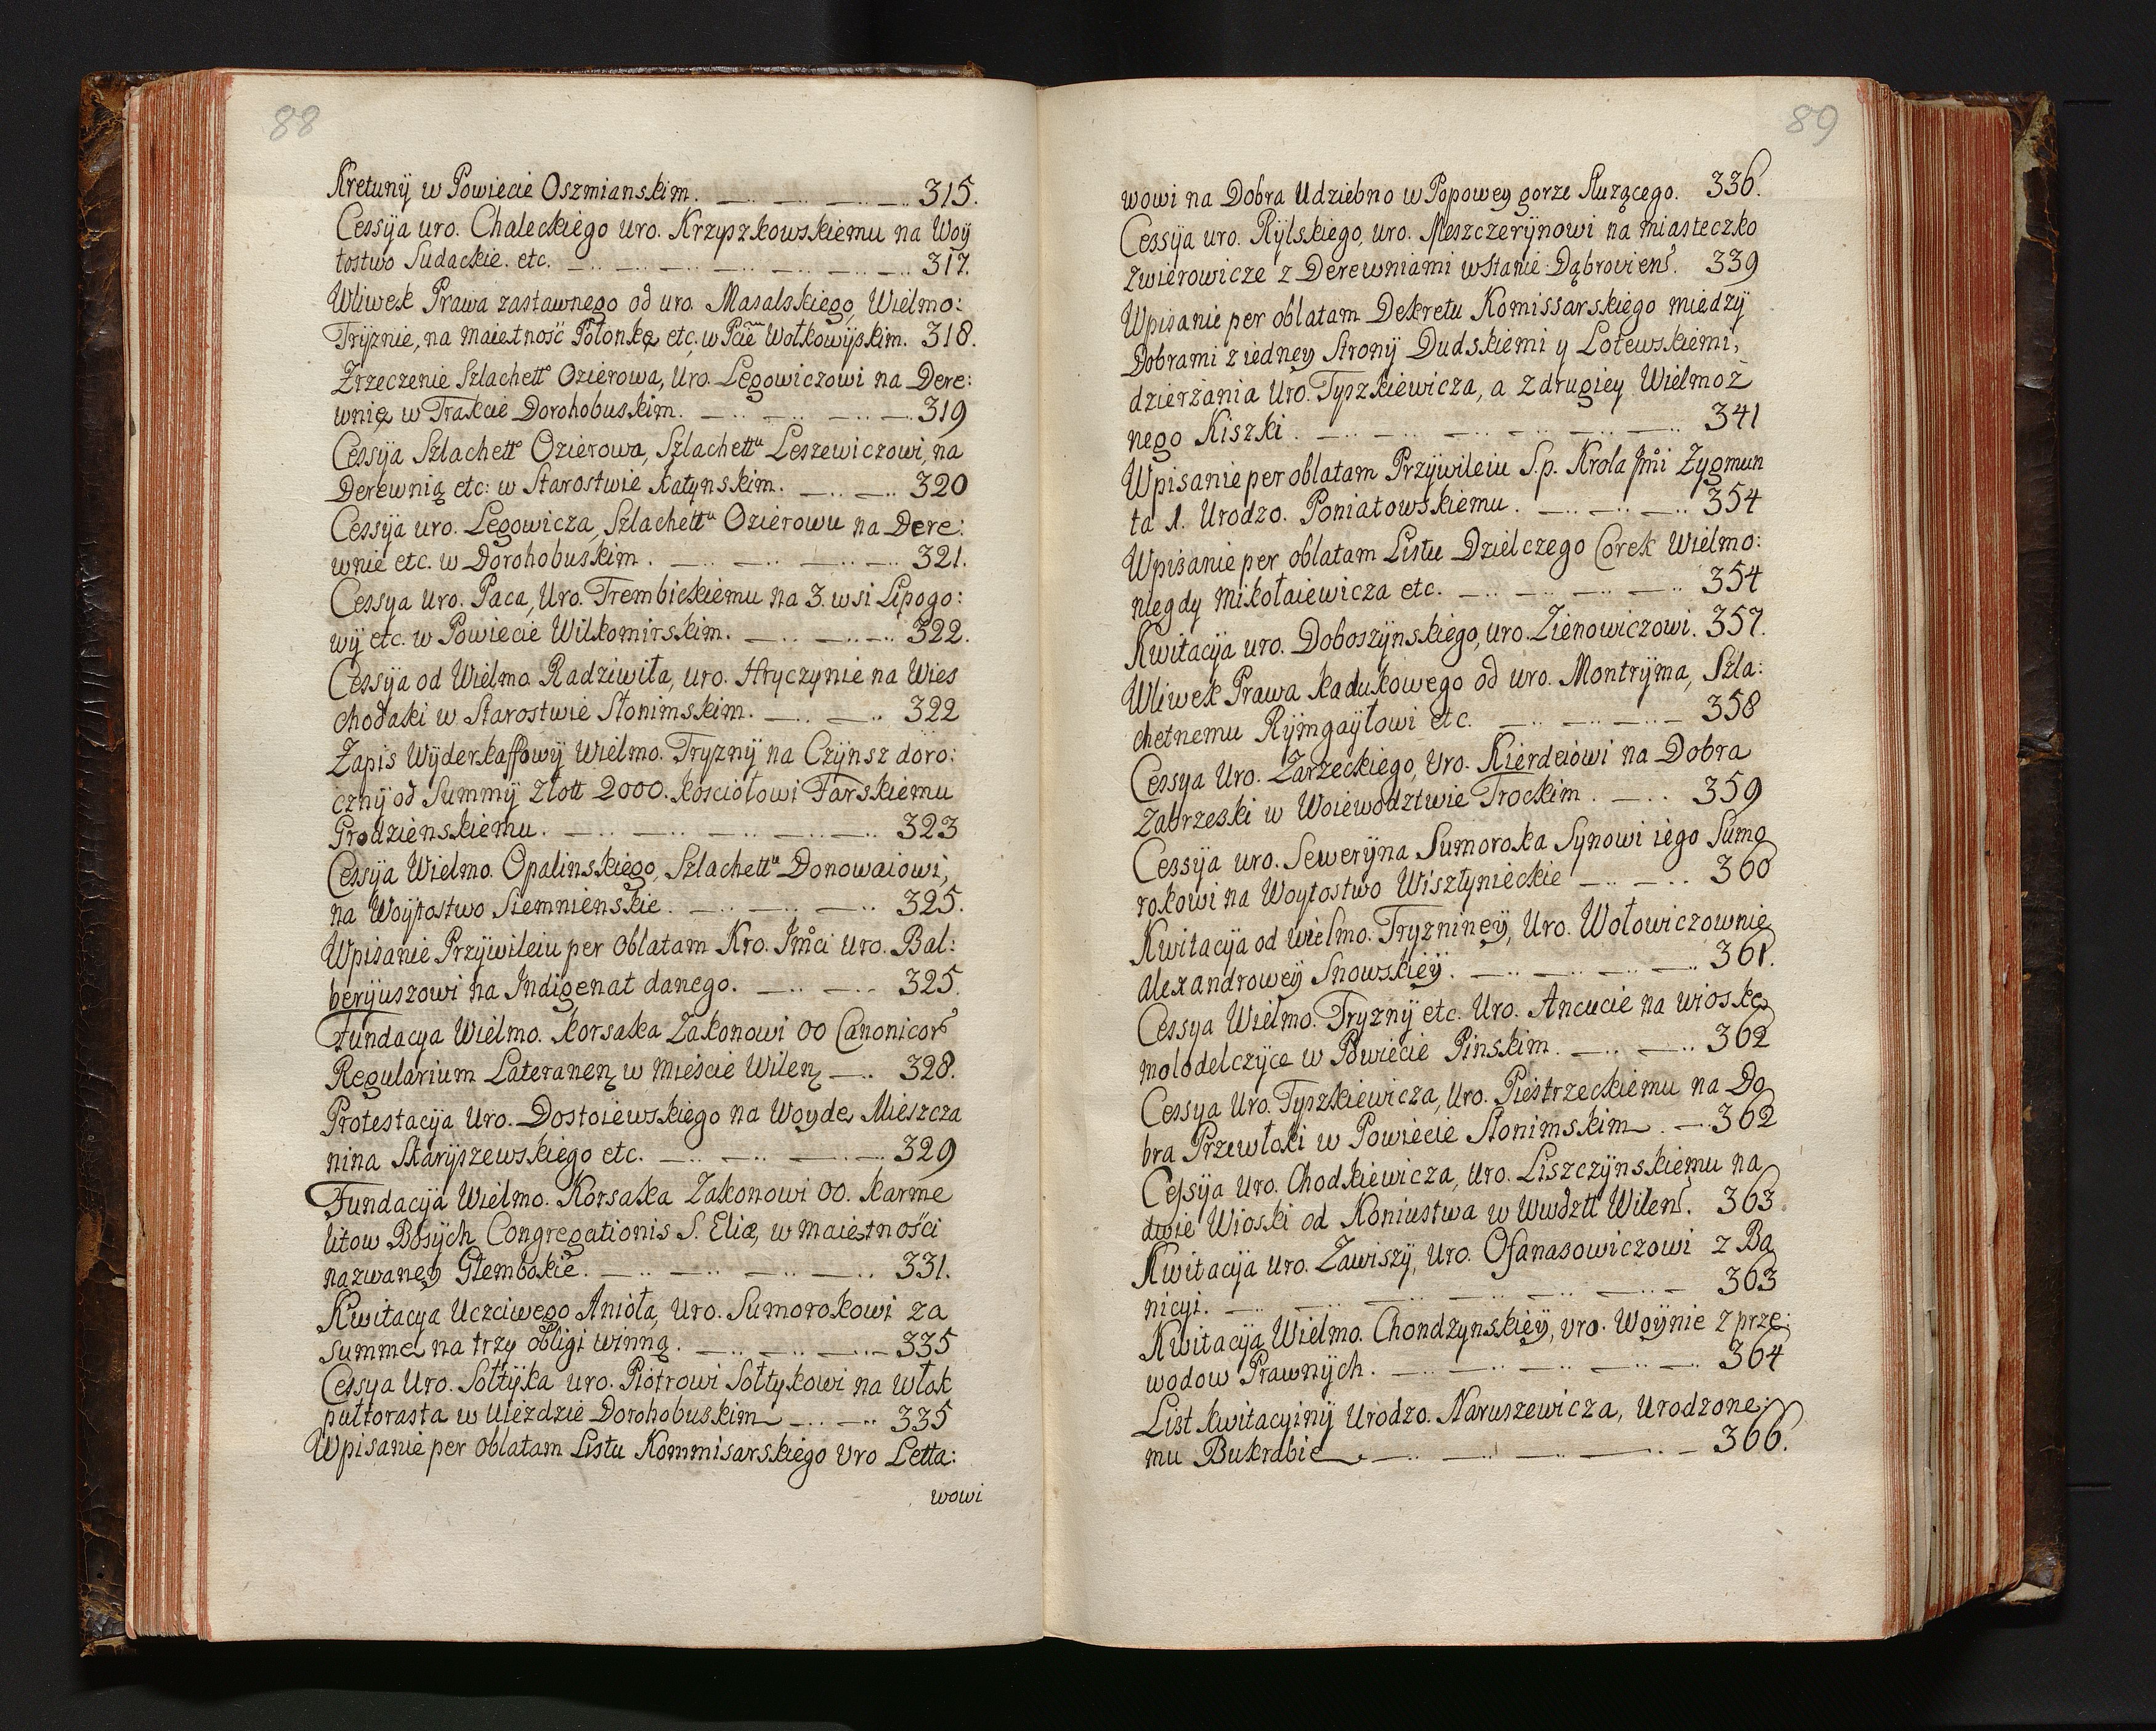 88
Kretunÿ w Powiecie Oszmianskim. 315.
Cessÿa uro. Chaleckiego uro. Krzyszkowskiemu na Woÿ
tostwo Sudackie. etc. 317.
Wliwek Prawa zastawnego od uro. Masalskiego, Wielmo:
Tryznie, na maietność Połonkę etc. w Pcie Wołkowÿskim. 318.
Zrzeczenie Szlachett° Ozierowa, Uro. Legowiczowi na Dere:
wnię w Trakcie Dorohobuskim. 319
Cessÿa Szlachett° Ozierowa, Szlachettu Leszewiczowi, na
Derewnią etc: w Starostwie Katynskim. 320
Cessÿa uro. Legowicza, Szlachettu Ozierowu na Dere:
wnie etc. w Dorohobuskim. 321.
Cessya Uro. Paca, Uro. Trembickiemu na 3. wsi Lipogo:
wÿ etc. w Powiecie Wilkomirskim. 322.
Cessÿa od Wielmo. Radziwiła, uro. Hryczynie na Wies
chodaki w Starostwie Słonimskim. 322
Zapis Wÿderkaffowÿ Wielmo. Tryznÿ na Czÿnsz doro:
cznÿ od Summÿ Złott 2000. Kosciołowi Farskiemu
Grodzienskiemu. 323
Cessÿa Wielmo. Opalinskiego, Szlachettu Donowaiowi,
na Woÿtostwo Siemnienskie. 325.
Wpisanie Przÿwileiu per Oblatam Kro. Jmci uro. Bal:
berÿuszowi na Indigenat danego. 325.
Fundacya Wielmo. Korsaka Zakonowi OO Canonicor
Regularium Lateranen w Mieście Wilen 328.
Protestacÿa Uro. Dostoiewskiego na Woyde Mieszcza
nina Starÿszewskiego etc. 329
Fundacÿa Wielmo. Korsaka Zakonowi OO. Karme
litow Bosÿch Congregationis S. Eliæ, w maiętności
nazwaney Głembokie. 331.
Kwitacya Uczciwego Anioła, Uro. Sumorokowi za
summe na trzy obligi winną. 335
Cessya Uro. Sołtÿka uro. Piotrowi Sołtykowi na włok
pułtorasta w Uiezdzie Dorohobuskim 335
Wpisanie per oblatam Listu Kommisarskiego Uro Letta:
wowi
89
wowi na Dobra Udziebno w Popowey gorze Służącego. 336.
Cessÿa uro. Rÿlskiego, uro. Meszczerÿnowi na miasteczko
Zwierowicze z Derewniami w Stanie Dąbrovien. 339
Wpisanie per oblatam Dekretu Komissarskiego miedzÿ
Dobrami z iedney Stronÿ Dudskiemi y Łotewskiemi,
dzierżania Uro. Tyszkiewicza, a z drugiey Wielmoż
nego Kiszki. 341
Wpisanie per oblatam Przÿwileiu S.p. Krola Jmi Zygmun
ta 1. Urodzo. Poniatowskiemu. 354
Wpisanie per oblatam Listu Dzielczego Corek Wielmo:
niegdy Mikołaiewicza etc. 354
Kwitacÿa uro. Doboszÿnskiego, uro. Zienowiczowi. 357.
Wliwek Prawa kadukowego od uro. Montrÿma, Szla:
chetnemu Rÿmgaÿłowi etc. 358
Cessya Uro. Zarzeckiego, Uro. Kierdeiowi na Dobra
Zabrzeski w Woiewodztwie Trockim. 359
Cessÿa uro. Sewerÿna Sumoroka Synowi iego Sumo
rokowi na Woytostwo Wisztynieckie 360
Kwitacÿa od Wielmo. Tryznineÿ, Uro. Wołowiczownie
Alexandroweÿ Snowskieÿ. 361.
Cessya Wielmo. Tryznÿ etc. Uro. Ancucie na wioske
molodelczÿce w Powiecie Pinskim. 362
Cessya Uro. Tyszkiewicza, Uro. Piestrzeckiemu na Do
bra Przewłoki w Powiecie Słonimskim. 362
Cessÿa Uro. Chodkiewicza, Uro. Liszczÿnskiemu na
dwie Wioski od Koniustwa w Wwdztt Wilen. 363.
Kwitacÿa uro. Zawiszÿ, Uro. Ofanasowiczowi z Ba
nicyi. 363
Kwitacÿa Wielmo. Chondzynskieÿ, uro. Woÿnie z prze:
wodow Prawnÿch. 364
List kwitacyinÿ Urodzo. Naruszewicza, Urodzone:
mu Bukrabie 366.